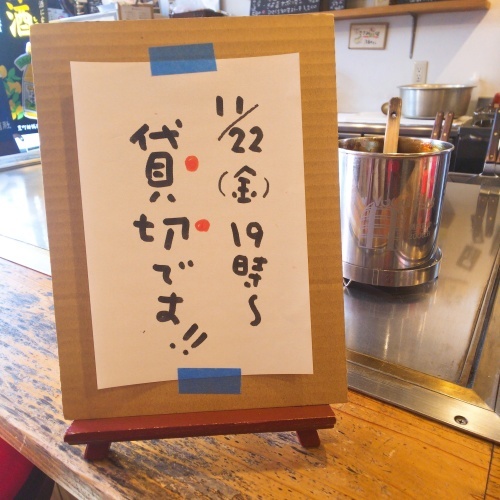 11/22
(金)
19時〜
貸切です!!
酒